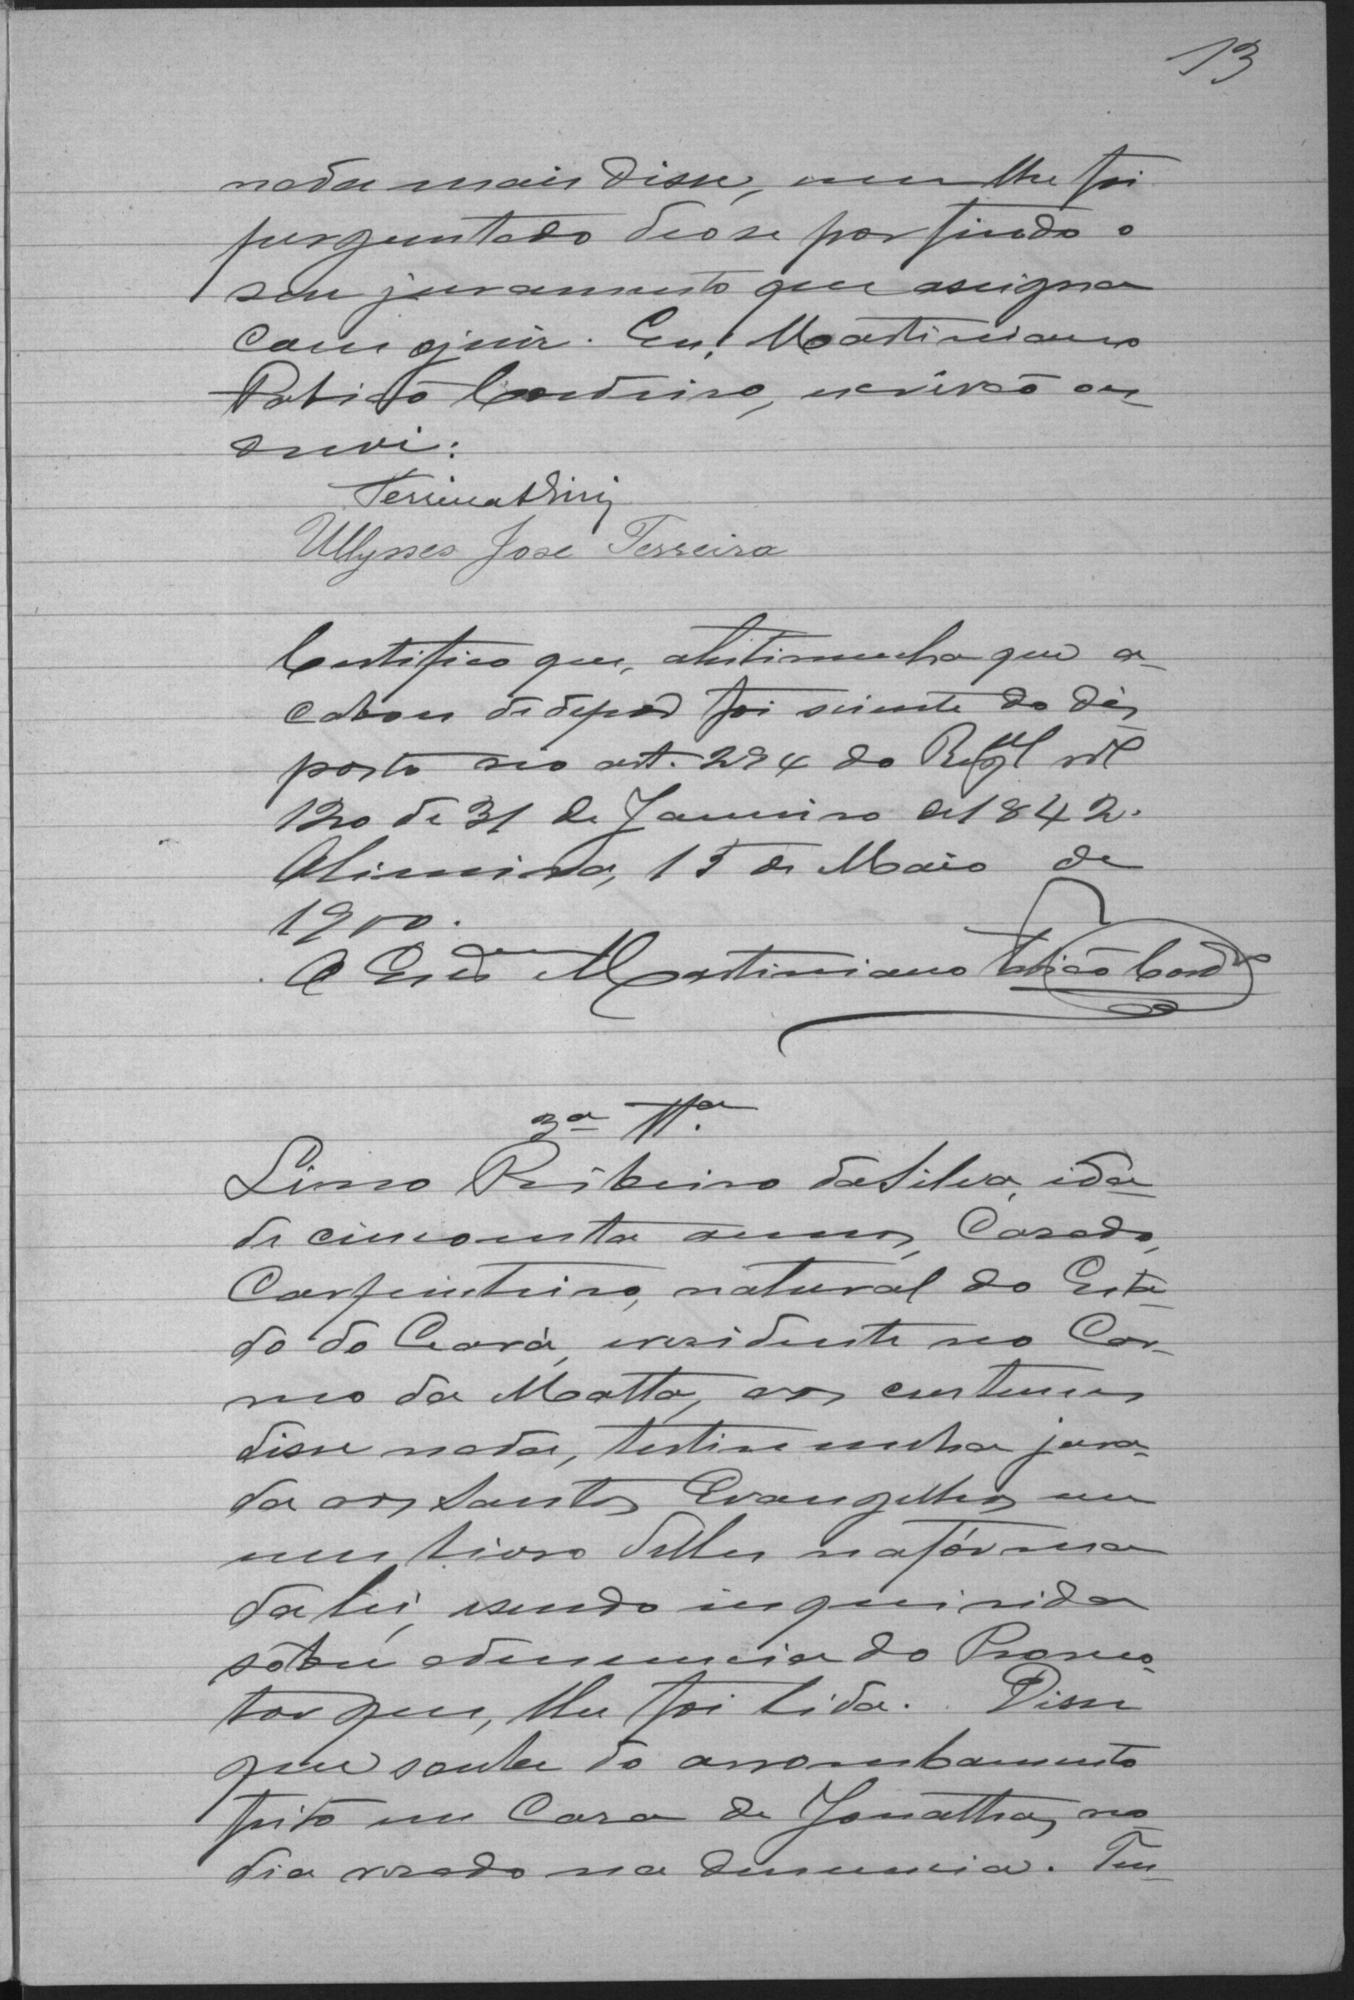 13
nada mais disse, nem lhe foi
perguntado deo se por findo o
seu juramento que assigna
com ojuiz. Eu, Martiniano
Cordeiro, escrivão es-
crevi:
Ulysses Jose Ferreira
Certifico que, atestimunha que a-
cabou dedepor foi sciente do dis
posto no art. 294 do Regul nº
120 de 31 de Janeiro de 1842.
15 de Maio de
1900.
O Escrvão Martiniano Cordº
3ª Ttª.
Lino Ribeiro daSilva, ida-
de cincoenta annos, Casado,
Carpinteiro, natural do Esta-
do do Ceará, eresidente no Car-
mo da Matta, aos custumes
disse nada, testimunha jura-
da aos Santos Evangelhos em
um livro delles nafórma
da lei, esendo inquirida
sôbre adenuncia do Promo-
tor que, lhe foi lida. Disse
que soube do arrombamento
feito em Casa de Jonathas no
dia resado na denuncia. Ten-